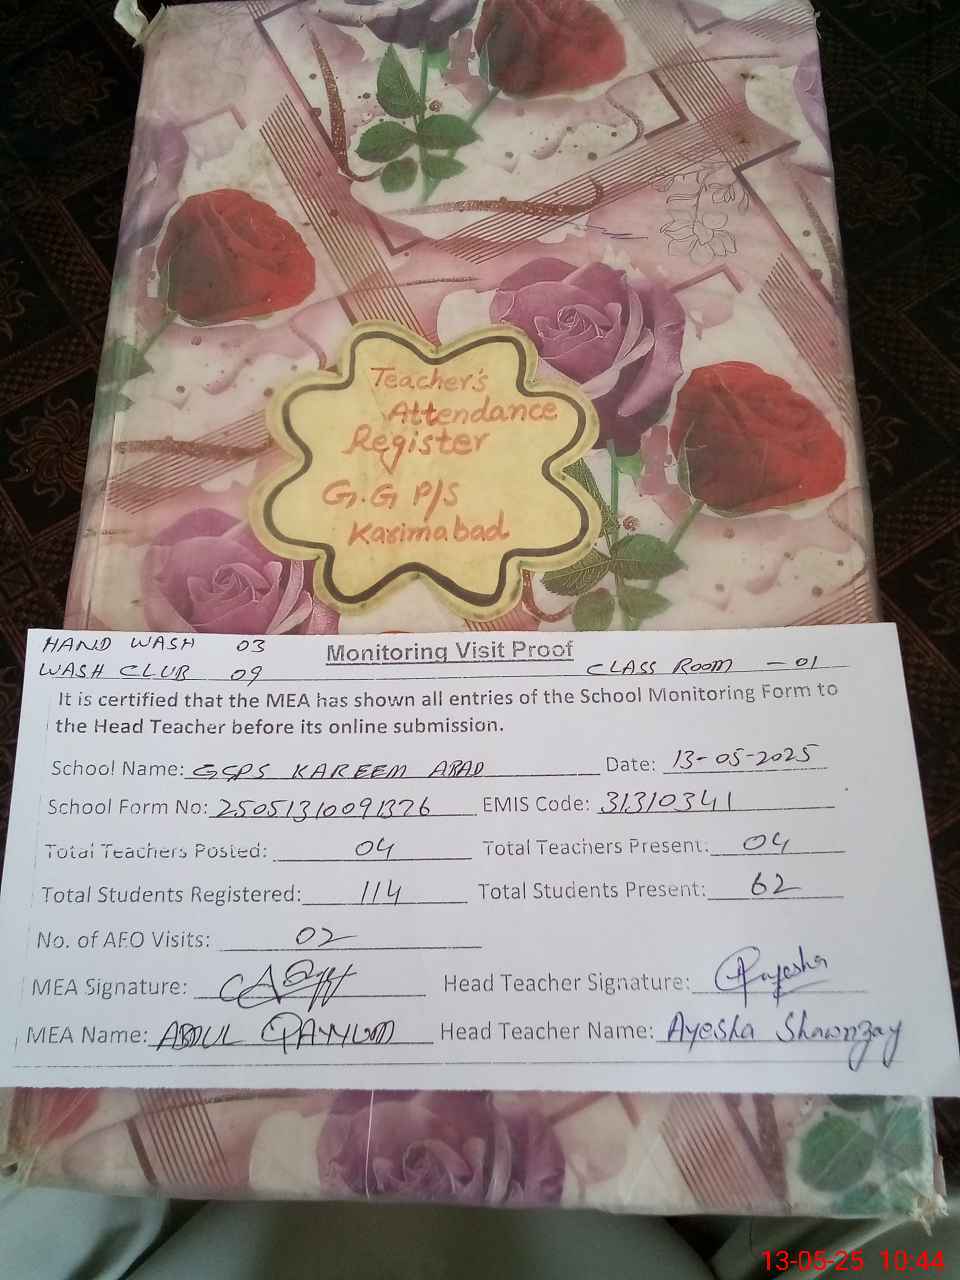 Teacher's
Attendance
Register
G.G P/S
Karimabad
HAND WASH 03
WASH CLUB 09
Monitoring Visit Proof
CLASS ROOM - 01
It is certified that the MEA has shown all entries of the School Monitoring Form to
the Head Teacher before its online submission.
School Name: GGPS KAREEM ABAD Date: 13-05-2025
School Form No: 25051310091376 EMIS Code: 31310341
Total Teachers Posted: 04 Total Teachers Present: 04
Total Students Registered: 114 Total Students Present: 62
No. of AEO Visits: 02
MEA Signature: Head Teacher Signature: Ayesha
MEA Name: ABDUL QAYYUM Head Teacher Name: Ayesha Shawnzay
13-05-25 10:44